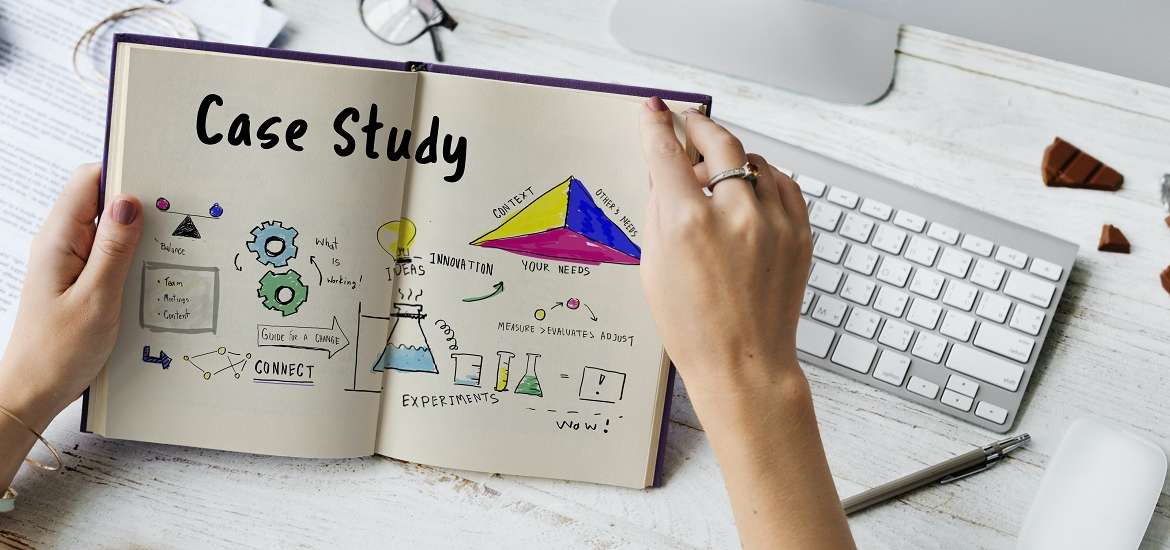 Case Study
Balance
• Team
• Meetings
• Content
What
is
working!
GUIDE FOR A CHANGE
CONNECT
IDEAS
INNOVATION
CONTEXT
OTHER'S NEEDS
YOUR NEEDS
MEASURE > EVALUATES ADJUST
EXPERIMENTS
=
!
WOW!